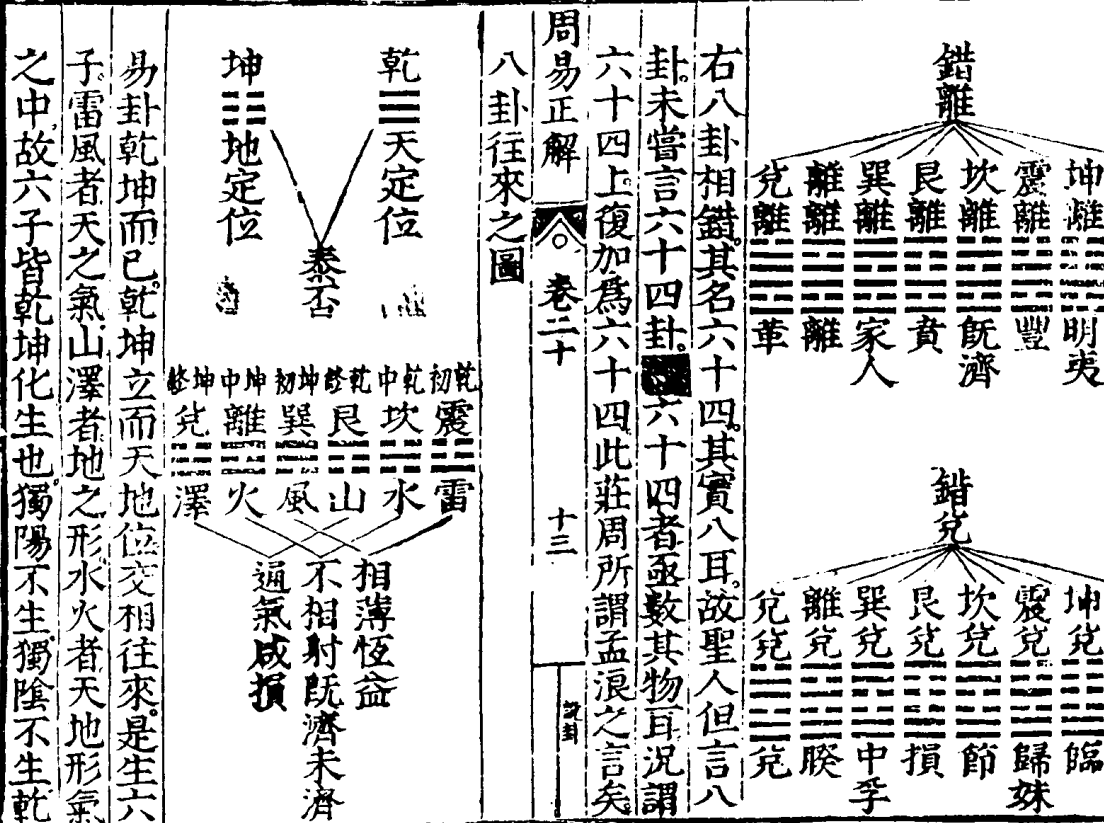 錯離
坤離 明夷
震離 豐
坎離 既濟
艮離 賁
巽離 家人
離離 離
兌離 革
錯兌
坤兌 臨
震兌 歸妹
坎兌 節
艮兌 損
巽兌 中孚
離兌 睽
兌兌 兌
右八卦相錯其名六十四其實八耳故聖人但言八
卦未嘗言六十四卦六十四者亟數其物耳況謂
六十四上復加爲六十四此莊周所謂孟浪之言矣
周易正解 卷二十 十三 說卦
八卦往來之圖
乾 天定位
坤 地定位
泰否
乾初 震 雷
乾中 坎 水
乾終 艮 山
坤初 巽 風
坤中 離 火
坤終 兌 澤
相薄恆益
不相射既濟未濟
通氣咸損
易卦乾坤而已乾坤立而天地位交相往來是生六
子雷風者天之氣山澤者地之形水火者天地形氣
之中故六子皆乾坤化生也獨陽不生獨陰不生乾